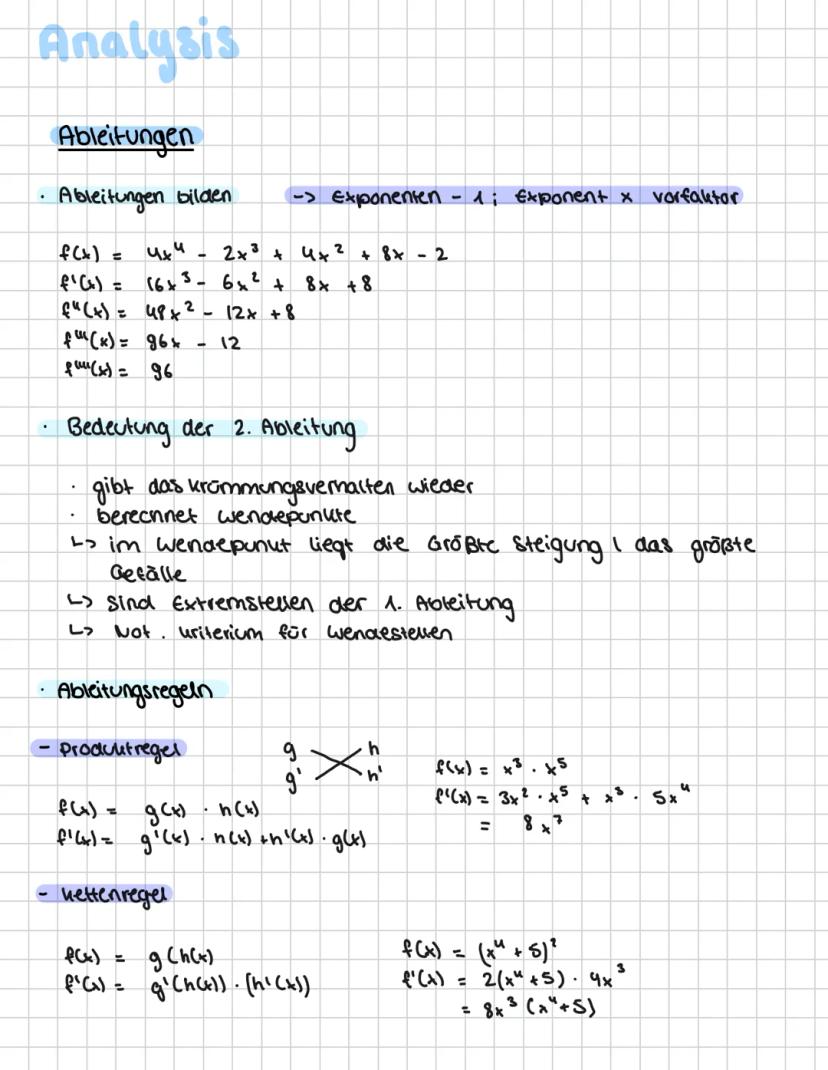 Analysis
Ableitungen
· Ableitungen bilden -> Exponenten - 1; Exponent x Vorfaktor
f(x) = 4x⁴ - 2x³ + 4x² + 8x - 2
f'(x) = 16x³ - 6x² + 8x + 8
f''(x) = 48x² - 12x + 8
f'''(x) = 96x - 12
f''''(x) = 96
· Bedeutung der 2. Ableitung
· gibt das Krümmungsverhalten wieder
· berechnet Wendepunkte
↳ im Wendepunkt liegt die Größte Steigung / das größte
Gefälle
↳ sind Extremstellen der 1. Ableitung
↳ Not. Kriterium für Wendestellen
· Ableitungsregeln
- Produktregel
g h
g' h'
f(x) = g(x) · h(x)
f'(x) = g'(x) · h(x) + h'(x) · g(x)
f(x) = x³ · x⁵
f'(x) = 3x² · x⁵ + x³ · 5x⁴
= 8x⁷
- Kettenregel
f(x) = g(h(x)
f'(x) = g'(h(x)) · (h'(x))
f(x) = (x⁴ + 5)²
f'(x) = 2(x⁴ + 5) · 4x³
= 8x³ (x⁴ + 5)